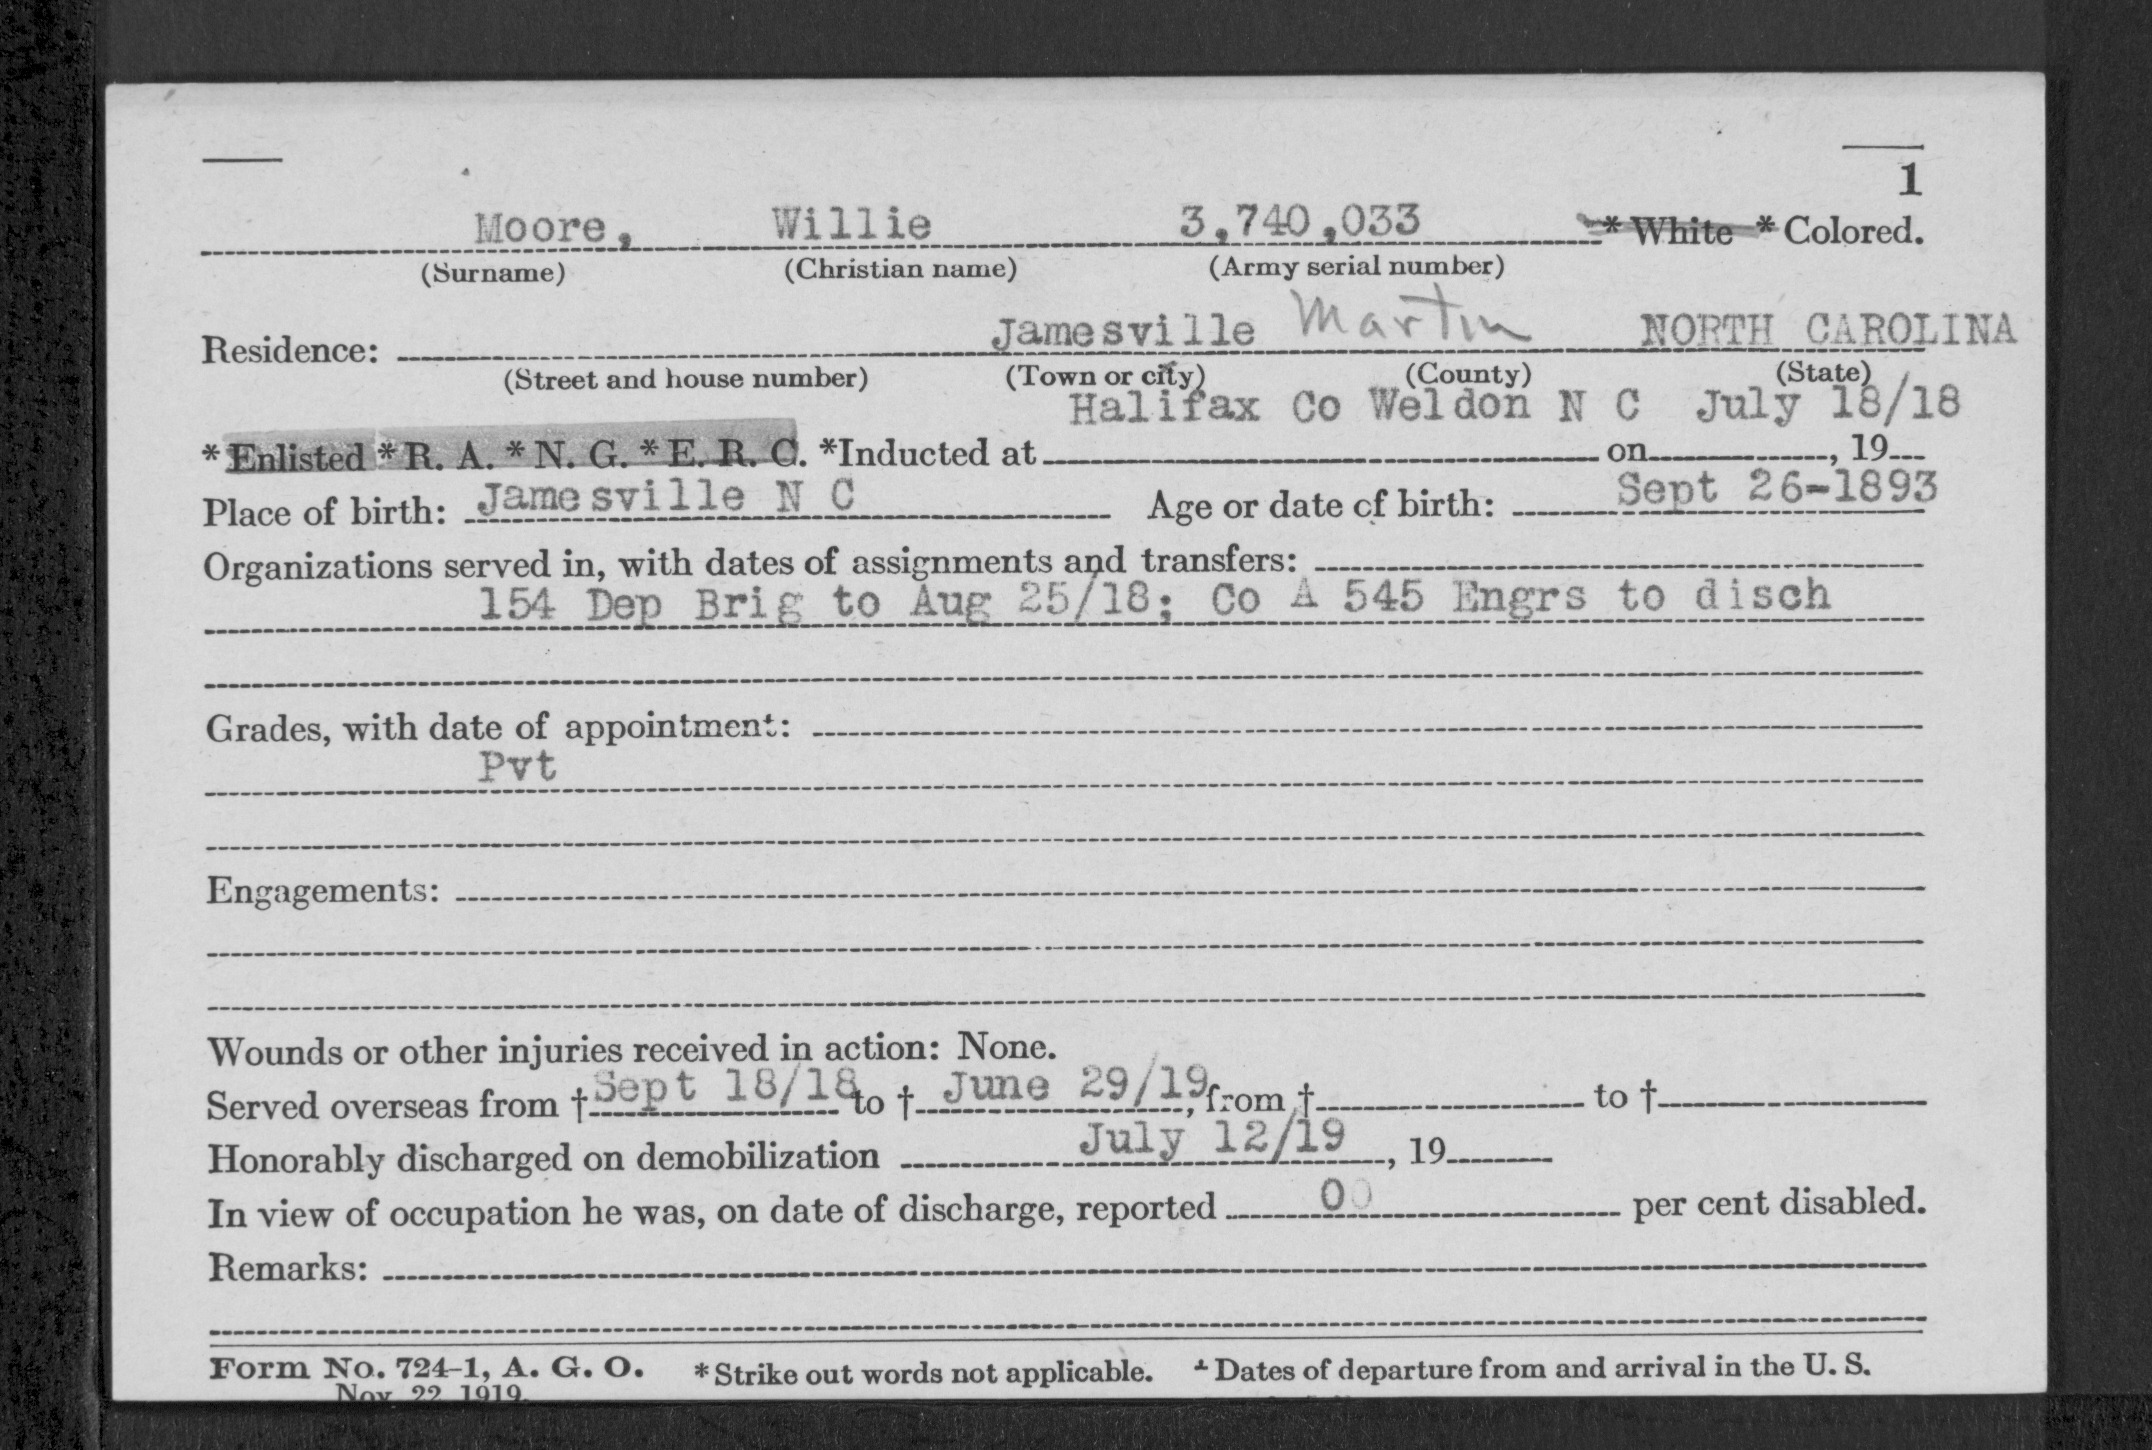 1
Moore, Willie 3,740,033 * White * Colored.
(Surname) (Christian name) (Army serial number)
Residence: Jamesville Martin NORTH CAROLINA
(Street and house number) (Town or city) (County) (State)
Halifax Co Weldon N C July 18/18
* Enlisted * R. A. * N. G. * E. R. C. *Inducted at on , 19
Place of birth: Jamesville N C Age or date of birth: Sept 26-1893
Organizations served in, with dates of assignments and transfers:
154 Dep Brig to Aug 25/18; Co A 545 Engrs to disch
Grades, with date of appointment:
Pvt
Engagements:
Wounds or other injuries received in action: None.
Served overseas from † Sept 18/18 to † June 29/19, from † to †
Honorably discharged on demobilization July 12/19, 19
In view of occupation he was, on date of discharge, reported 00 per cent disabled.
Remarks:
Form No. 724-1, A. G. O. * Strike out words not applicable. † Dates of departure from and arrival in the U. S.
Nov. 22, 1919.